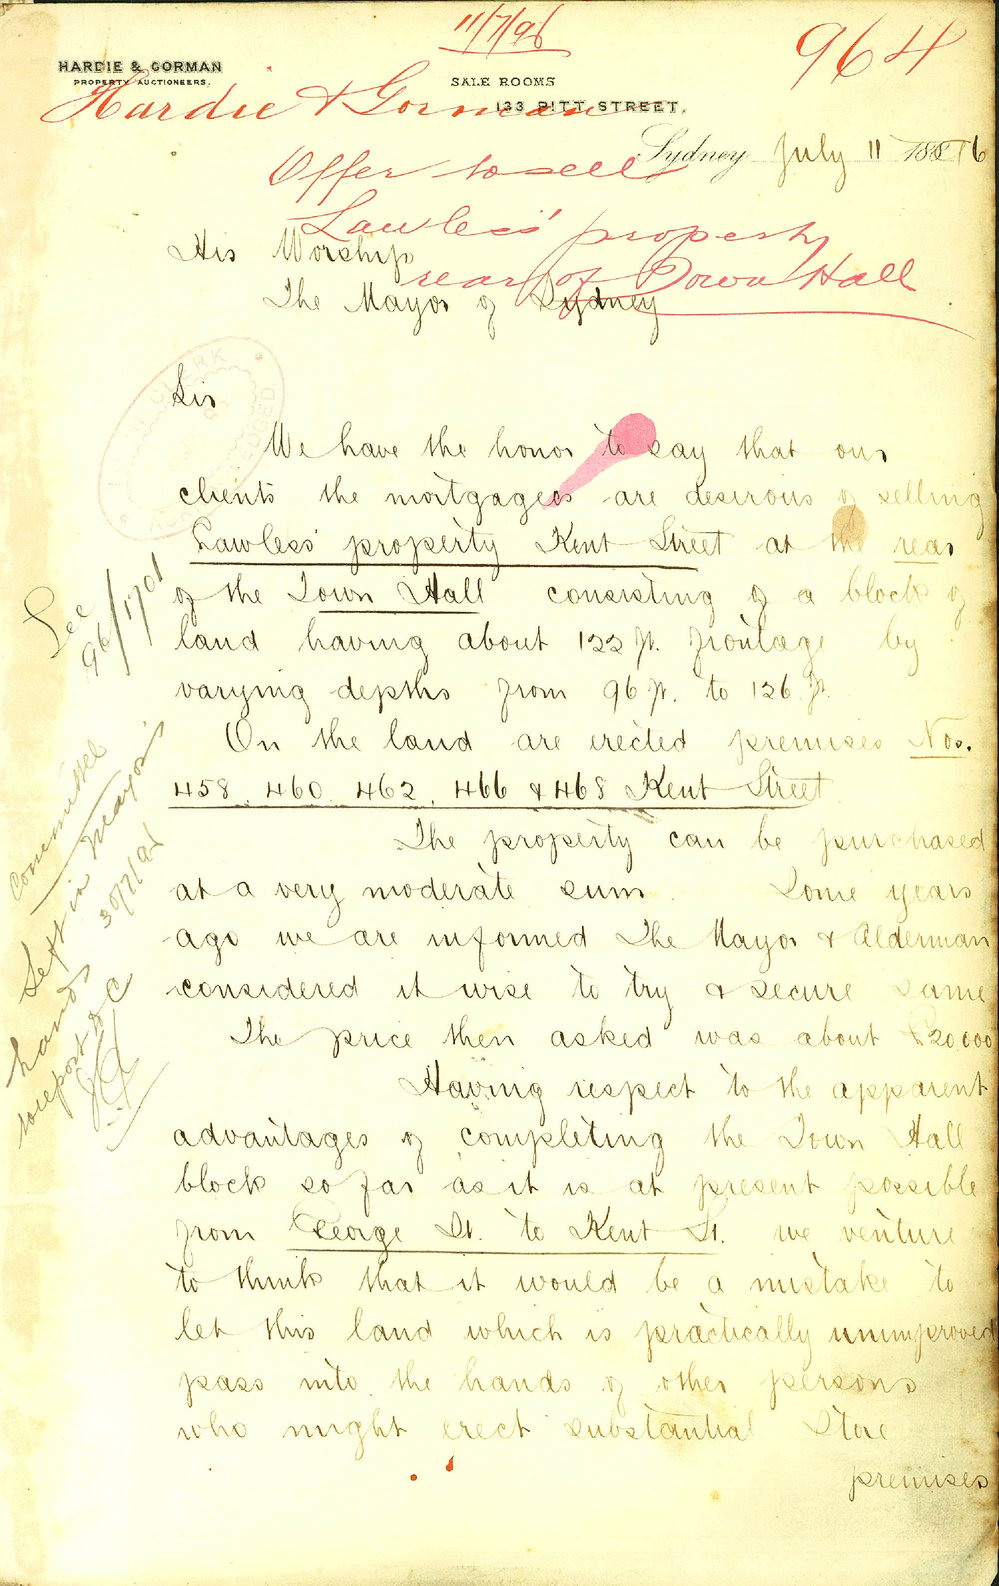 11/7/96
964
HARDIE & GORMAN
PROPERTY AUCTIONEERS.
SALE ROOMS
133 PITT STREET.
Hardie & Gorman
Offer to sell
Lawless' property
rear of Town Hall
Sydney July 11 1896
His Worship
The Mayor of Sydney
Sir
We have the honor to say that our
clients the mortgagees are desirous of selling
Lawless' property Kent Street at the rear
of the Town Hall consisting of a block of
land having about 122 ft. frontage by
varying depths from 96 ft. to 126 ft.
On the land are erected premises Nos.
458, 460, 462, 466 & 468 Kent Street
The property can be purchased
at a very moderate sum. Some years
ago we are informed The Mayor & Alderman
considered it wise to try & secure same
The price then asked was about £20,000
Having respect to the apparent
advantages of completing the Town Hall
block so far as it is at present possible
from George St. to Kent St. we venture
to think that it would be a mistake to
let this land which is practically unimproved
pass into the hands of other persons
who might erect substantial Store
premises
See
96/1701
Committee
Left in Mayor's
hands 30/7/96
to report to C
CLERK